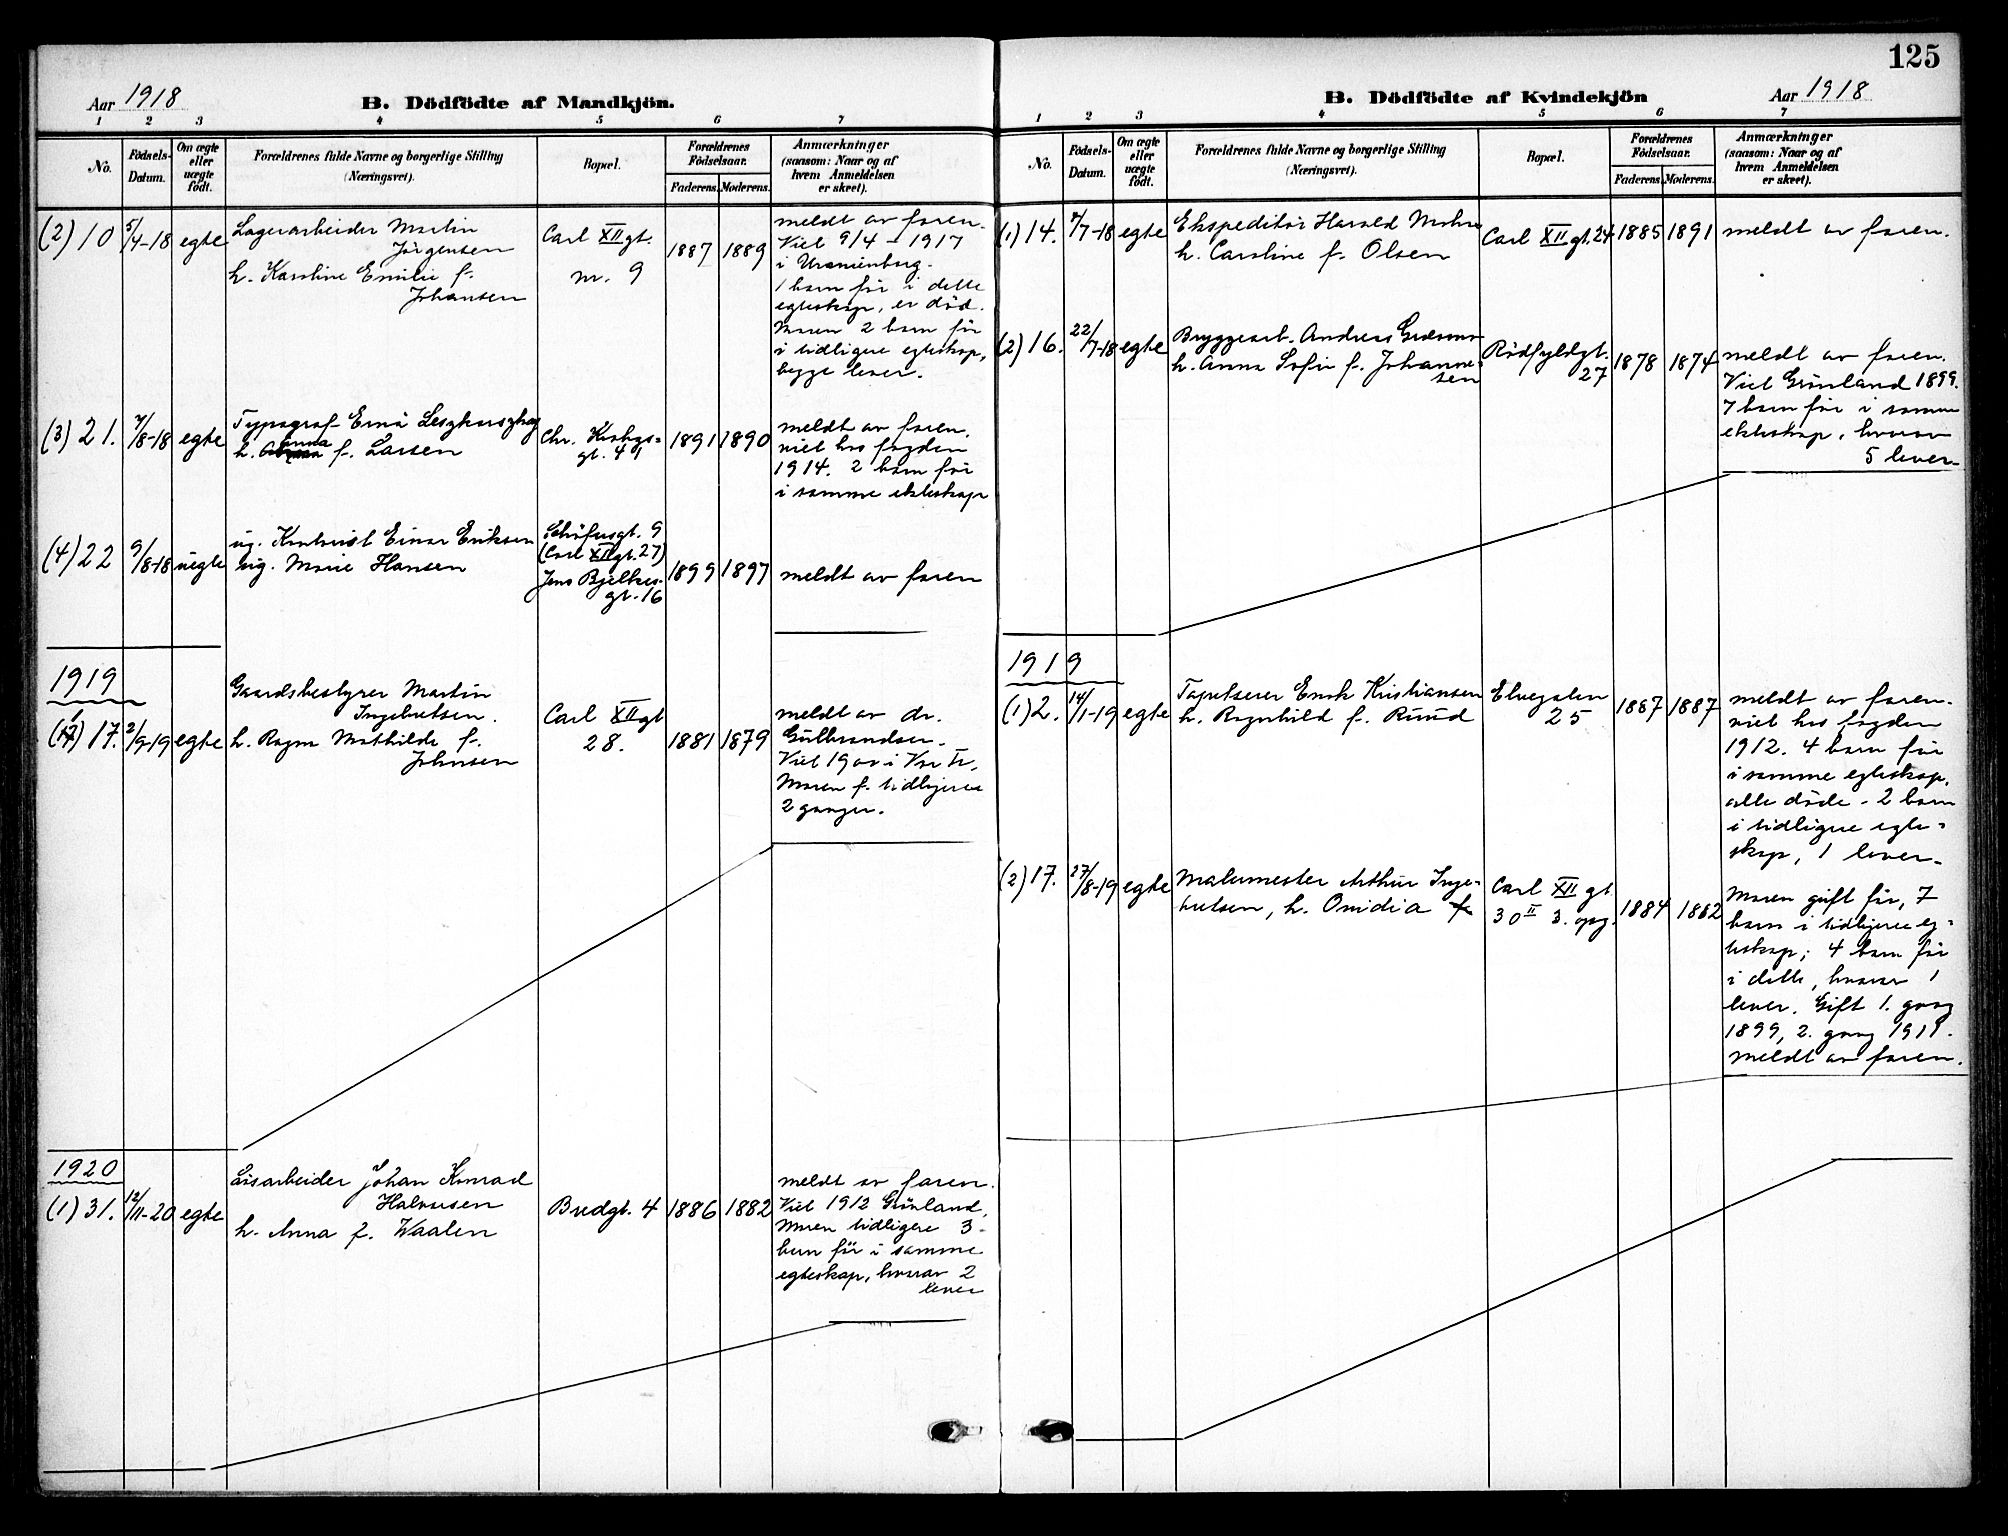 125
Aar 1918
B. Dödfödte af Mandkjön.
1 2 3 4 5 6 7
No.
Födsels-
Datum.
Om ægte
eller
uægte
født.
Forældrenes fulde Navne og borgerlige Stilling
(Næringsvei).
Bopæl.
Forældrenes
Födselsaar.
Faderens. Moderens.
Anmærkninger
(saasom: Naar og af
hvem Anmeldelsen
er skeet).
(2) 10 5/4-18 egte
Lagerarbeider Martin
Jørgensen
h. Karoline Emilie f.
Johansen
Carl XII gt.
nr. 9
1887 1889
meldt av faren.
Viet 9/4 - 1917
i Uranienborg.
1 barn før i dette
egteskap, er død.
Moren 2 barn før
i tidligere egteskap,
begge lever.
(3) 21. 7/8-18 egte
Typograf Ernö
h. Anna f. Larsen
Chr. Krohgs-
gt. 41
1891 1890
meldt av faren.
viet hos fogden
1914. 2 barn før
i samme ekteskap
(4) 22 9/8-18 uegte
ug. Kontorist Einar Eriksen
ug. Marie Hansen
Schöfusgt. 9
(Carl XII gt. 27)
Jens Bjelkes-
gt. 16
1899 1897
meldt av faren
1919
(1) 17. 2/9-19 egte
Gaardsbestyrer Martin
Ingebretsen.
h. Ragna Mathilde f.
Johnsen
Carl XII gt
28.
1881 1879
meldt av dr.
Gulbrandsen.
Viet 1900 i Vor Fr.
Moren f. tidligere
2 ganger.
1920
(1) 31. 12/11-20 egte
Lisarbeider Johan Konrad
Halvorsen
h. Anna f. Waalen
Bredgt. 4
1886 1882
meldt av faren.
Viet 1912 Grönland,
Moren tidligere 3
barn før i samme
egteskap, hvorav 2
lever
B. Dödfödte af Kvindekjön
Aar 1918
1 2 3 4 5 6 7
No.
Födsels-
Datum.
Om ægte
eller
uægte
født.
Forældrenes fulde Navne og borgerlige Stilling
(Næringsvei).
Bopæl.
Forældrenes
Födselsaar.
Faderens. Moderens.
Anmærkninger
(saasom: Naar og af
hvem Anmeldelsen
er skeet).
(1) 14. 7/7-18 egte
Ekspeditør Harald
h. Caroline f. Olsen
Carl XII gt. 24
1885 1891
meldt av faren.
(2) 16. 22/7-18 egte
Bryggearb. Andreas
h. Anna Sofie f. Johanne-
sen
Rödfyldgt.
27
1878 1874
meldt av faren.
Viet Grönland 1899.
7 barn før i samme
ekteskap, hvorav
5 lever
1919
(1) 2. 14/1-19 egte
Tapetserer Enok Kristiansen
h. Ragnhild f. Ruud
Elvegaten
25
1887 1887
meldt av faren.
viet hos fogden
1912. 4 barn før
i samme egteskap,
alle døde - 2 barn
i tidligere egte-
skap, 1 lever.
(2) 17. 27/8-19 egte
Malermester Arthur Inge-
bretsen, h. Ovidia f.
Carl XII gt
30 II 3. opg.
1884 1882
Moren gift før, 7
barn i tidligere eg-
teskap; 4 barn før
i dette, hvorav 1
lever. Gift 1. gang
1899, 2. gang 1911.
meldt av faren.